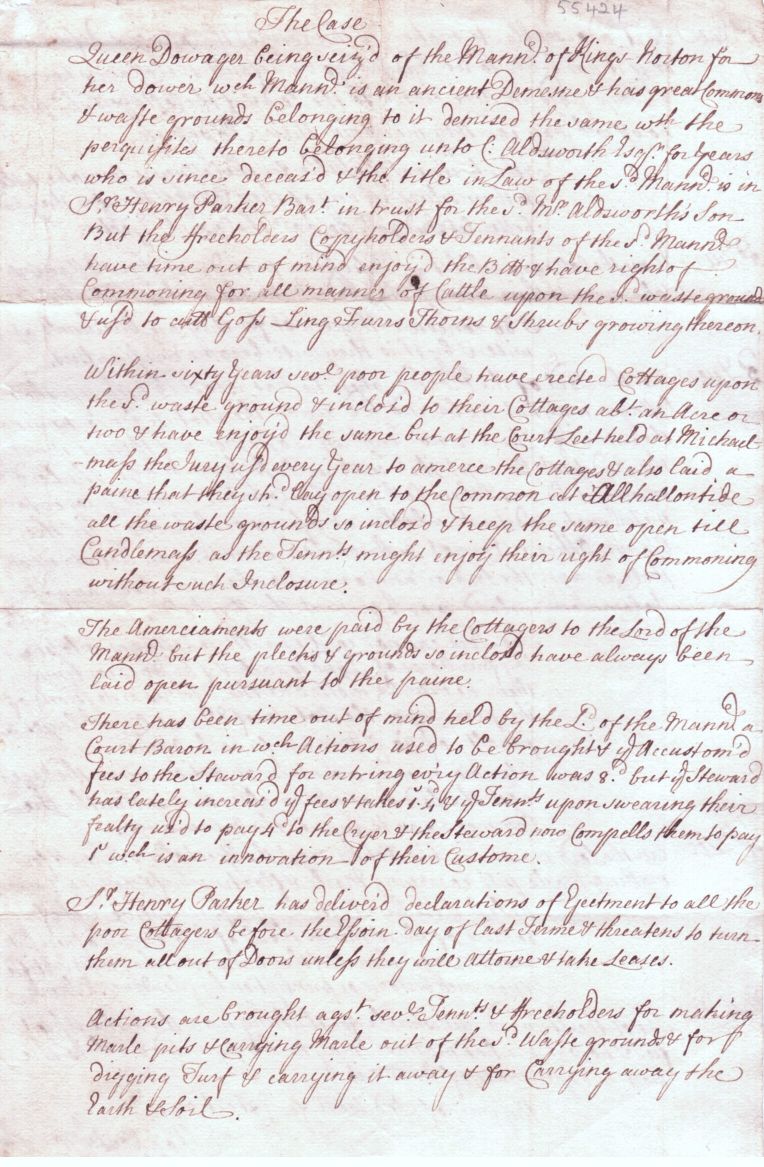 55424
The Case
Queen Dowager being seiz'd of the Mann.r of Kings Norton for
her dower wch Mann.r is an ancient Demesne & has great Commons
& waste grounds belonging to it demised the same wth the
perquisites thereto belonging unto C: Aldsworth Esq.r for Years
who is since deceas'd & the title in Law of the s.d Mann.r is in
S.r Henry Parker Bar.t in trust for the s.d Mr. Aldsworth's Son
But the Freeholders Copyholders & Tennants of the s.d Mann.r
have time out of mind enjoy'd the & have right of
Commoning for all manner of Cattle upon the s.d waste ground
& us'd to cutt Goss Ling Furrs Thorns & Shrubs growing thereon.
Within sixty Years sev.l poor people have erected Cottages upon
the s.d waste ground & inclos'd to their Cottages ab.t an Acre or
two & have enjoy'd the same but at the Court Leet held at Michael
-mass the Jury us'd every Year to amerce the Cottages & also laid a
paine that they sh.d lay open to the Common at Allhallontide
all the waste grounds so inclos'd & keep the same open till
Candlemass as the Tenn.ts might enjoy their right of Commoning
without such Inclosure.
The Amerciaments were paid by the Cottagers to the Lord of the
Mann.r but the plecks & grounds so inclos'd have always been
laid open pursuant to the paine.
There has been time out of mind held by the L.d of the Mann.r a
Court Baron in wch Actions used to be brought & ye Accustom'd
fees to the Steward for entring ev'ry Action was 8.d but ye Steward
has lately increas'd ye fees & takes & ye Tenn.ts upon swearing their
fealty us'd to pay 4.d to the Cryer & the Steward now Compells them to pay
1s wch is an innovation of their Custome.
S.r Henry Parker has deliver'd declarations of Ejectment to all the
poor Cottagers before the Essoin day of last Terme & threatens to turn
them all out of Doors unless they will Attorne & take Leases.
Actions are brought ag.st sev.l Tenn.ts & Freeholders for making
Marle pits & Carrying Marle out of the s.d Waste grounds & for
digging Turf & carrying it away & for Carrying away the
Earth & Soil.